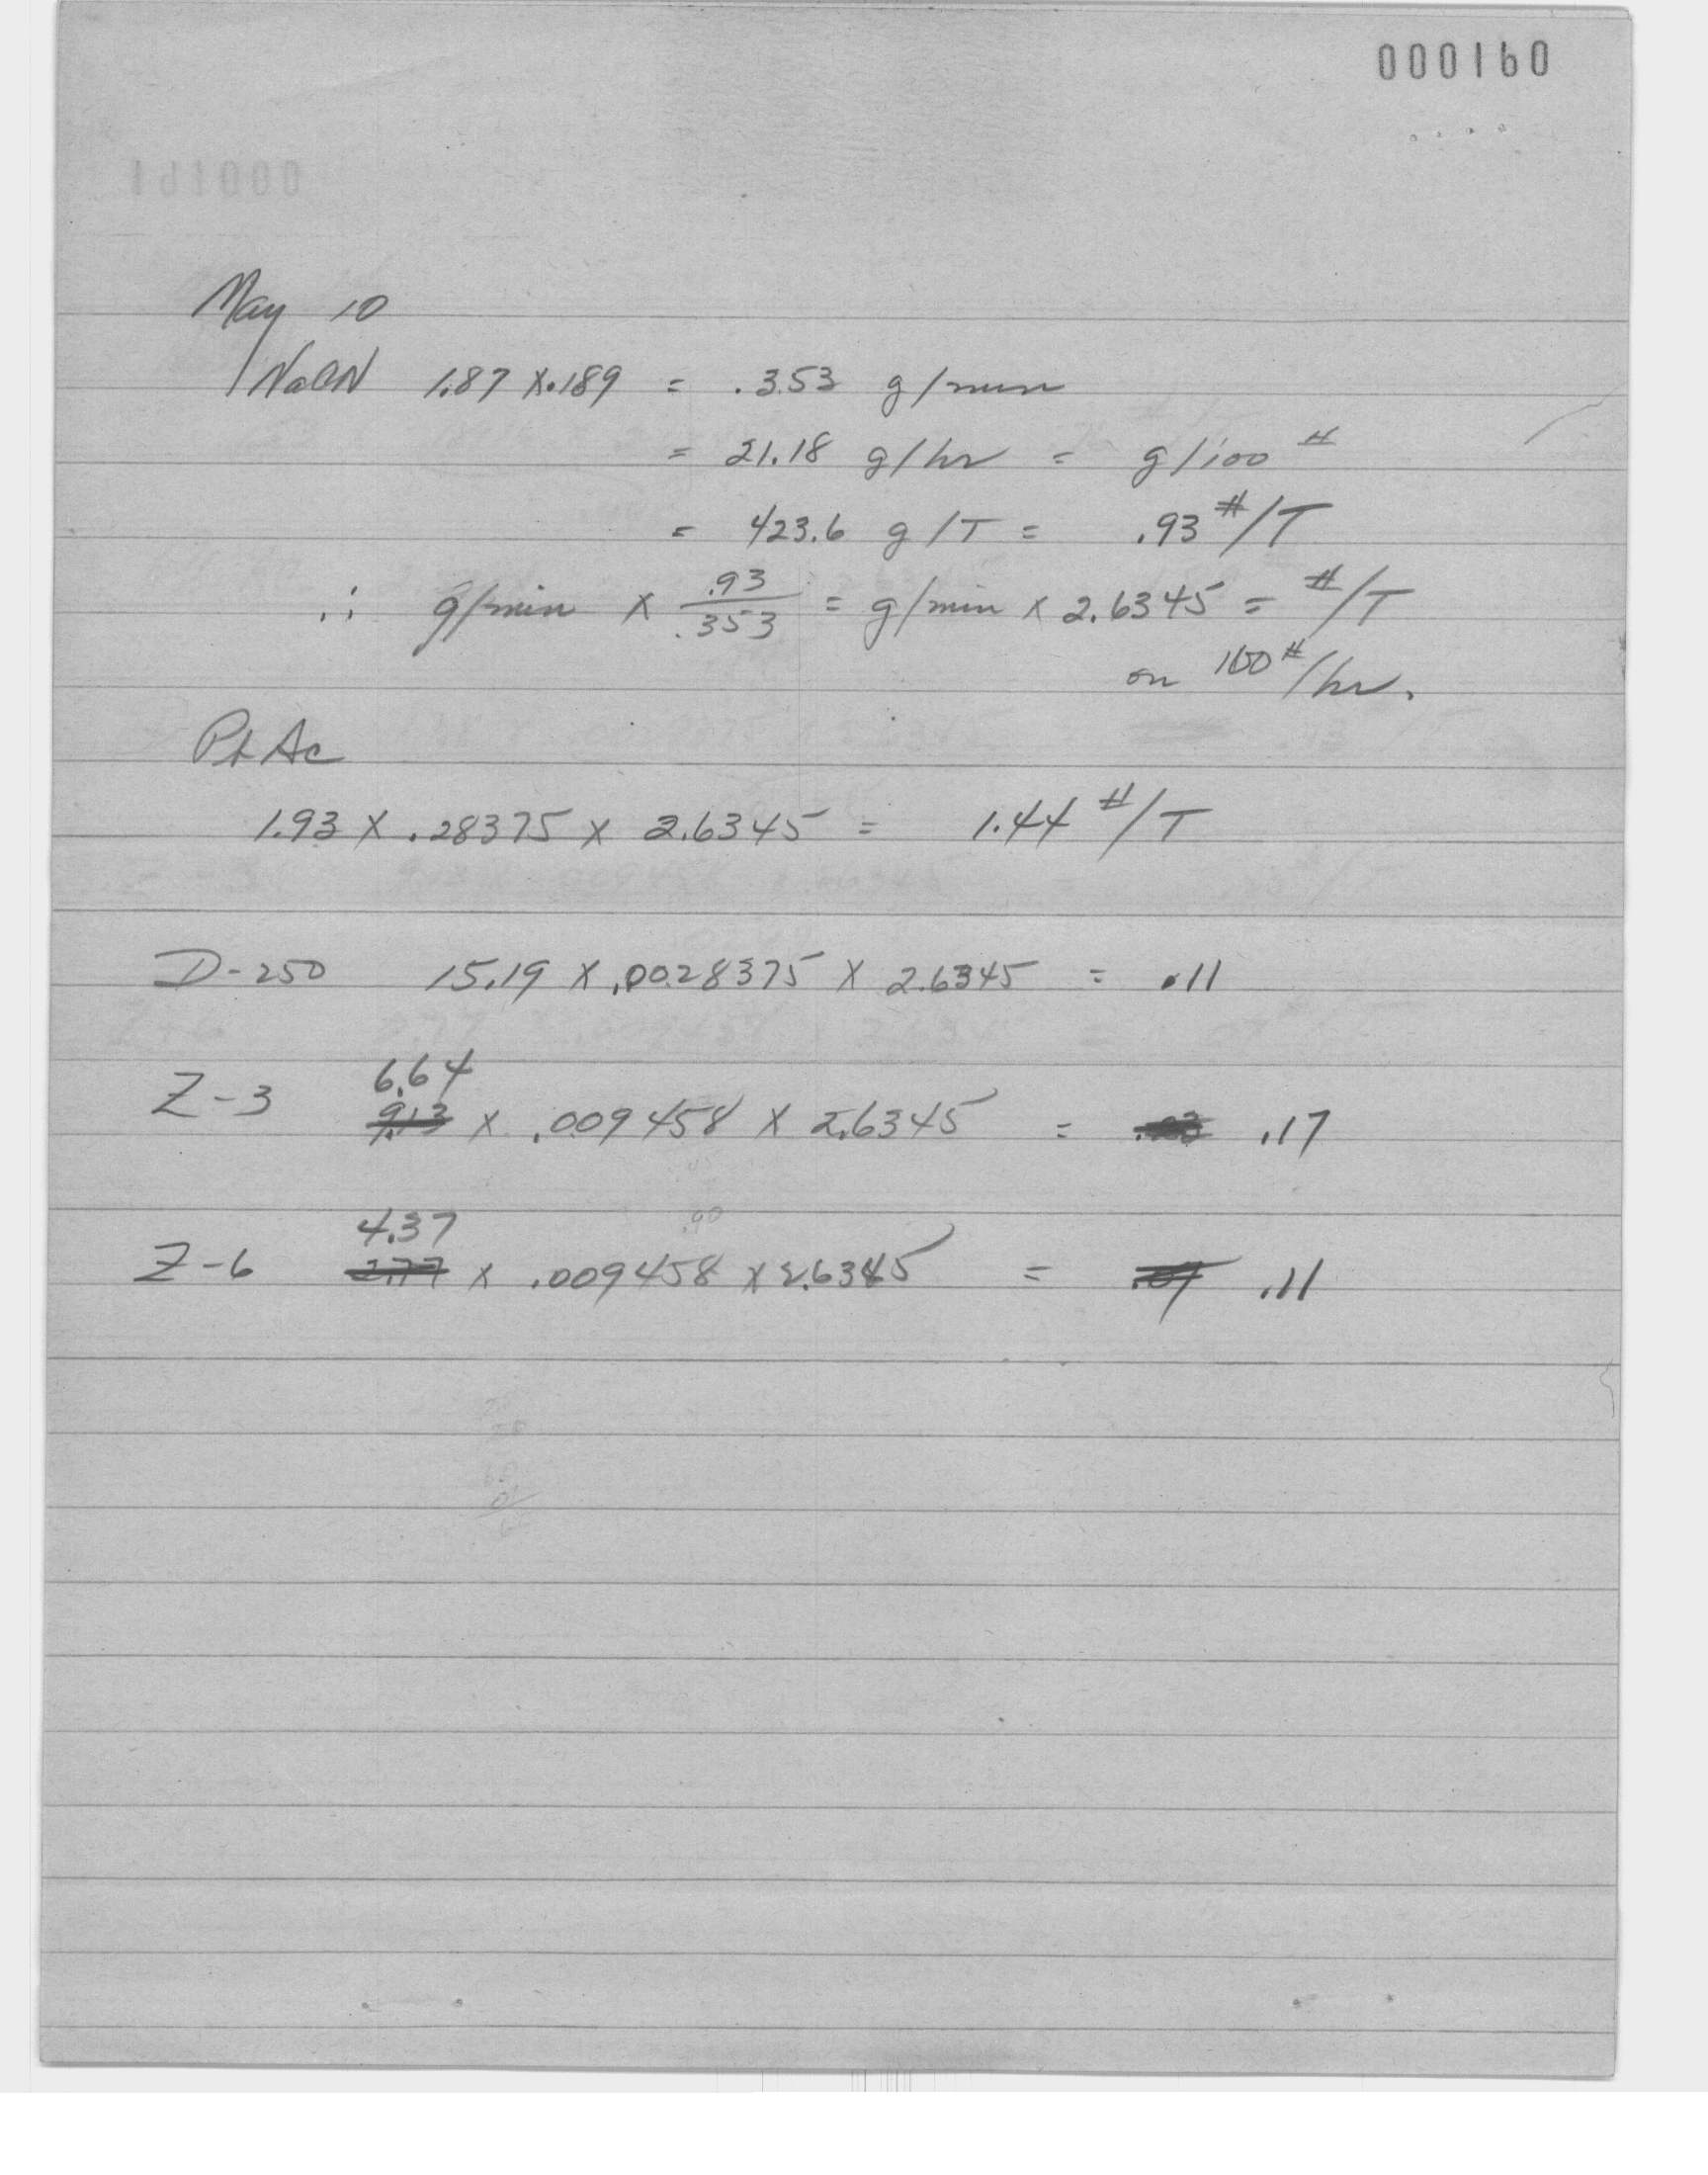 000160
May 10
NaCN 1.87 X .189 = .353 g/min
= 21.18 g/hr = g/100 #
= 423.6 g/T = .93 #/T
∴ g/min x .93/.353 = g/min x 2.6345 = #/T
on 100#/hr.
Pb Ac
1.93 X .28375 X 2.6345 = 1.44 #/T
D-250 15.19 X .0028375 X 2.6345 = .11
6.64
Z-3 9.13 X .009458 X 2.6345 = .23 .17
4.37
Z-6 2.77 x .009458 x 2.6345 = .07 .11